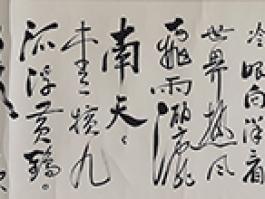 冷眼向洋看
世界熱风
飛雨洒
南天
云横九
派浮黄鶴。